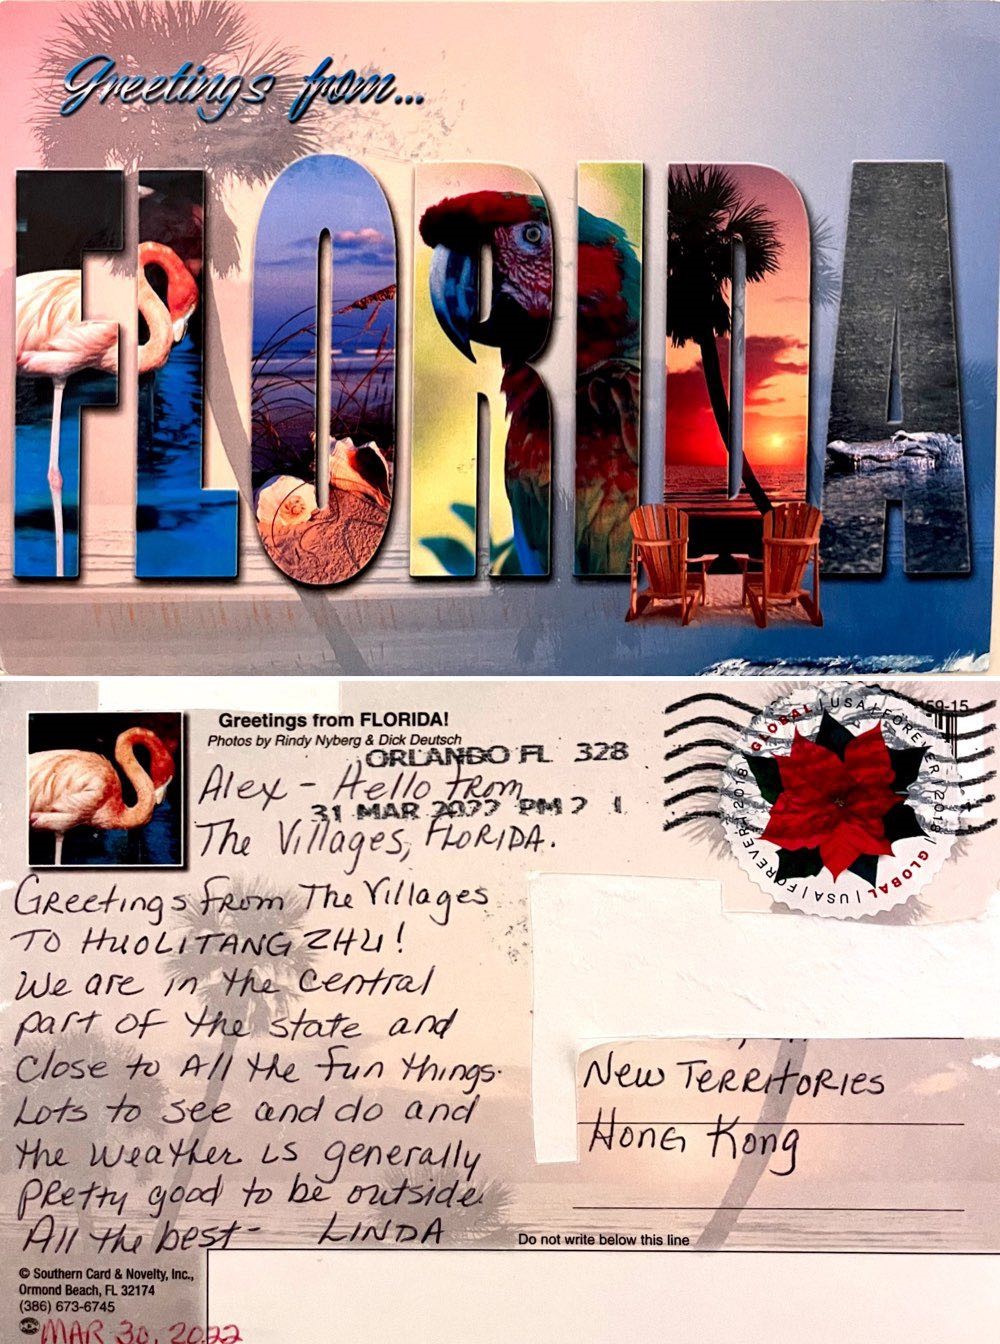 Greetings from...
FLORIDA
Greetings from FLORIDA!
Photos by Rindy Nyberg & Dick Deutsch
ORLANDO FL 328
31 MAR 2022 PM 2 L
Alex - Hello from
The Villages, FLORIDA.
Greetings from The Villages
TO HUOLITANG ZHU!
We are in the central
part of the state and
close to All the fun things.
Lots to see and do and
the weather is generally
pretty good to be outside.
All the best- LINDA
GLOBAL | USA | FOREVER | 2018 | GLOBAL | USA | FOREVER | 2018
59-15
New TERRITORIES
Hong Kong
Do not write below this line
© Southern Card & Novelty, Inc.,
Ormond Beach, FL 32174
(386) 673-6745
MAR 30, 2022